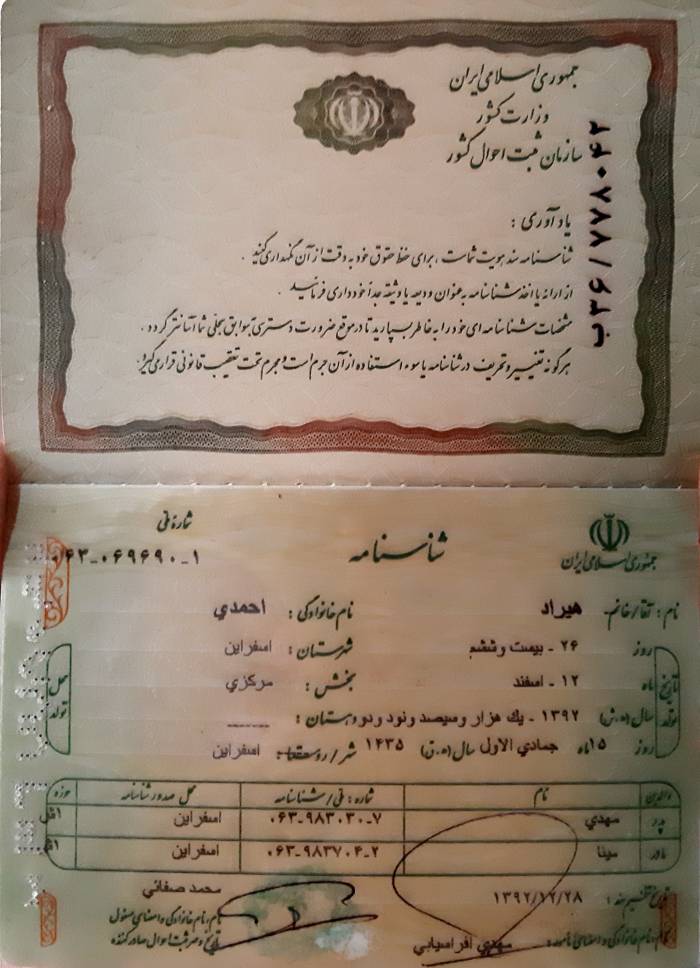 جمهوری اسلامی ایران
وزارت کشور
سازمان ثبت احوال کشور
ب۳۶/۷۷۸۰۴۲
یادآوری :
شناسنامه سند هویت شماست ، برای حفظ حقوق خود به دقت از آن نگهداری کنید .
از ارائه یا اخذ شناسنامه به عنوان ودیعه یا وثیقه جداً خودداری فرمائید .
مشخصات شناسنامه ای خود را به خاطر بسپارید تا در موقع ضرورت دسترسی به سوابق سجلی شما آسانتر گردد .
هرگونه تغییر و تحریف در شناسنامه یا سوء استفاده از آن جرم است و مجرم تحت تعقیب قانونی قرار می گیرد .
جمهوری اسلامی ایران
شناسنامه
شماره ملی
۰۶۳-۰۶۹۶۹۰-۱
نام : آقا/خانم- هیراد نام خانوادگی : احمدي
تاریخ تولد
روز ۲۶ - بیست وششم شهرستان : اسفراین
ماه ۱۲ - اسفند بخش : مرکزي
سال (ه.ش) ۱۳۹۲ - یك هزار وسیصد ونود ودو دهستان : ------
روز ۱۵ ماه جمادي الاول سال (ه.ق) ۱۴۳۵ شهر/روستا : اسفراین
محل تولد
والدین نام شماره : ملی/شناسنامه محل صدور شناسنامه حوزه
پدر مهدي ۰۶۳-۹۸۳۰۳۰-۷ اسفراین
مادر مینا ۰۶۳-۹۸۳۷۰۴-۲ اسفراین
تاریخ تنظیم سند : ۱۳۹۲/۱۲/۲۸ محمد صفائي
نام ، نام خانوادگی و امضای مأمور : مهدي افراسیابي
نام ، نام خانوادگی و امضای مسئول
تاریخ و مهر ثبت احوال صادر کننده